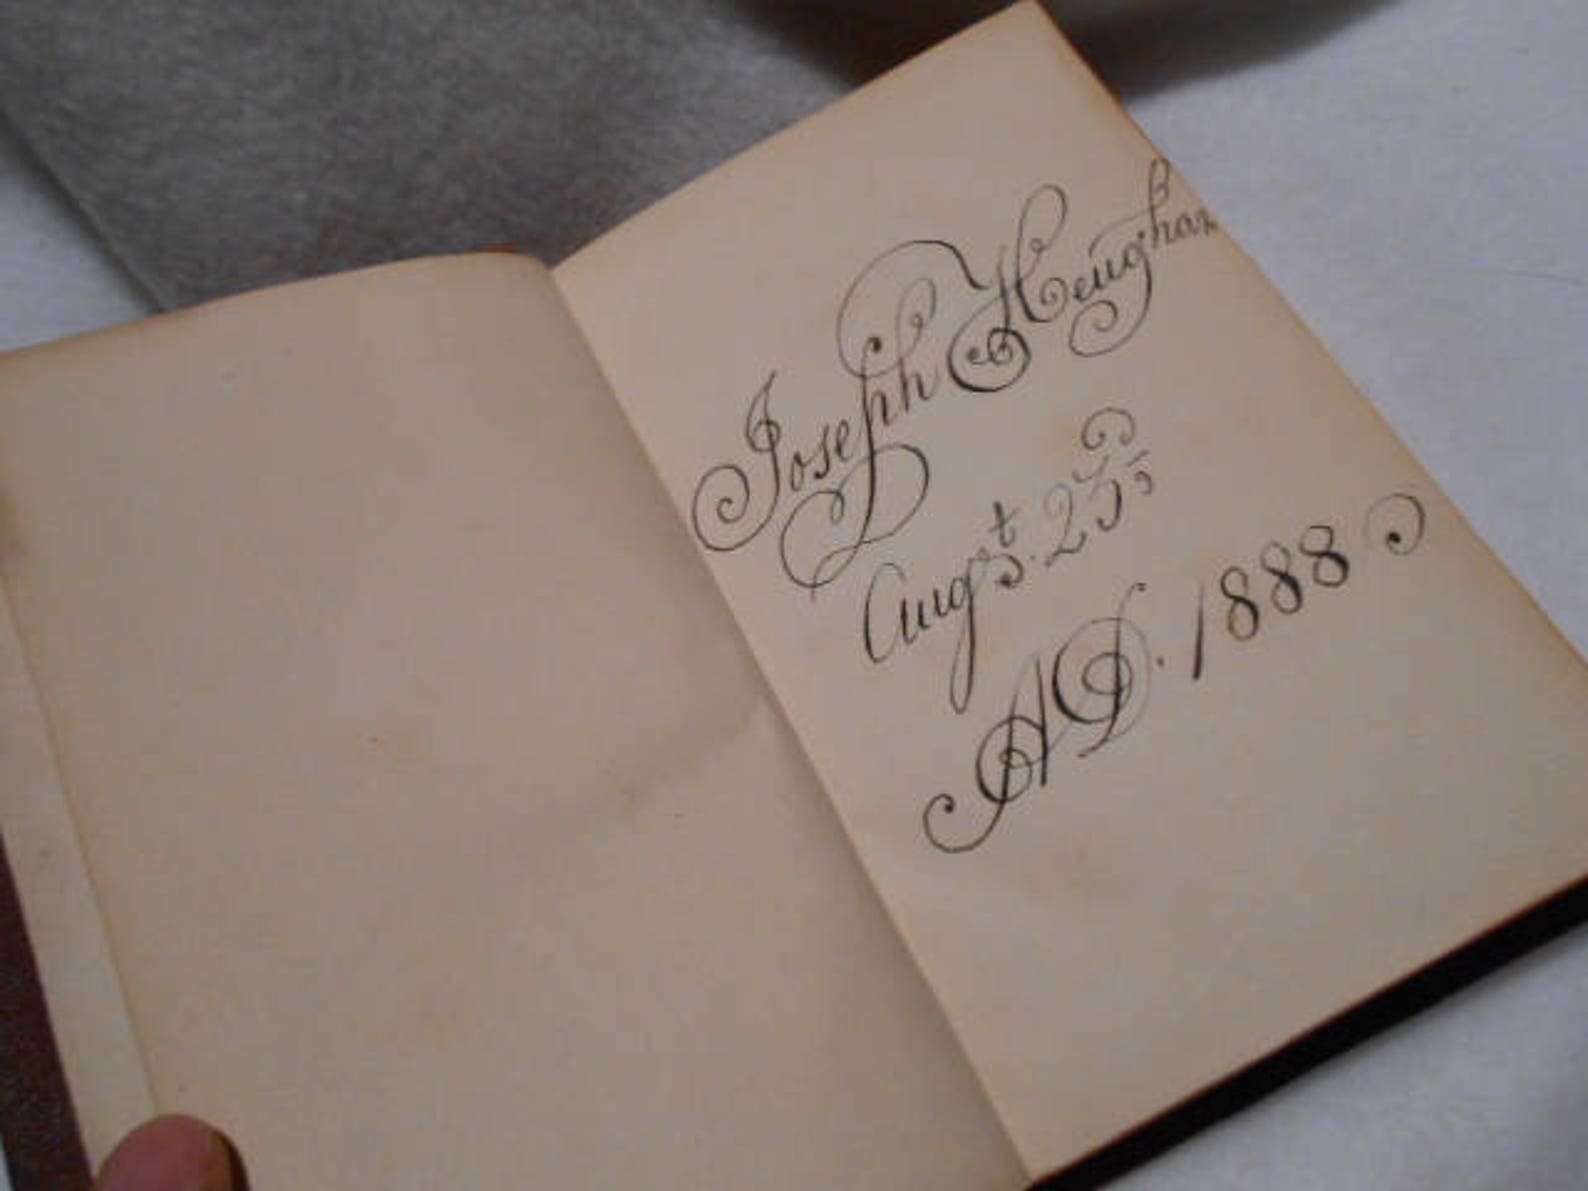 Joseph Heughan
Augst. 25
AD. 1888